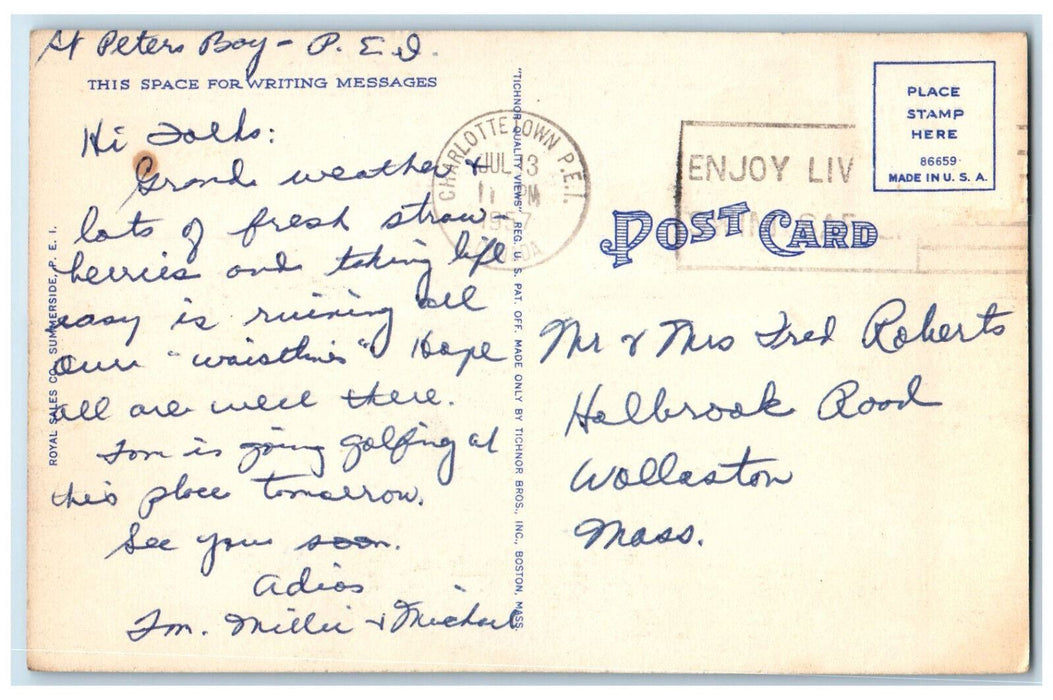 St Peters Bay - P. E. I.
THIS SPACE FOR WRITING MESSAGES
Hi Folks:
Grand weather &
lots of fresh straw-
berries and taking life
easy is ruining all
our "waistlines". Hope
all are well there.
Tom is going golfing at
this place tomorrow.
See you soon.
Adios
Tom. Millie & Michael
ROYAL SALES CO. SUMMERSIDE, P. E. I.
"TICHNOR QUALITY VIEWS" REG. U. S. PAT. OFF. MADE ONLY BY TICHNOR BROS., INC., BOSTON, MASS.
CHARLOTTETOWN P.E.I.
JUL 13
PM
1957
ENJOY LIV
POST CARD
PLACE
STAMP
HERE
86659
MADE IN U. S. A.
Mr & Mrs Fred Roberts
Holbrook Road
Wollaston
Mass.